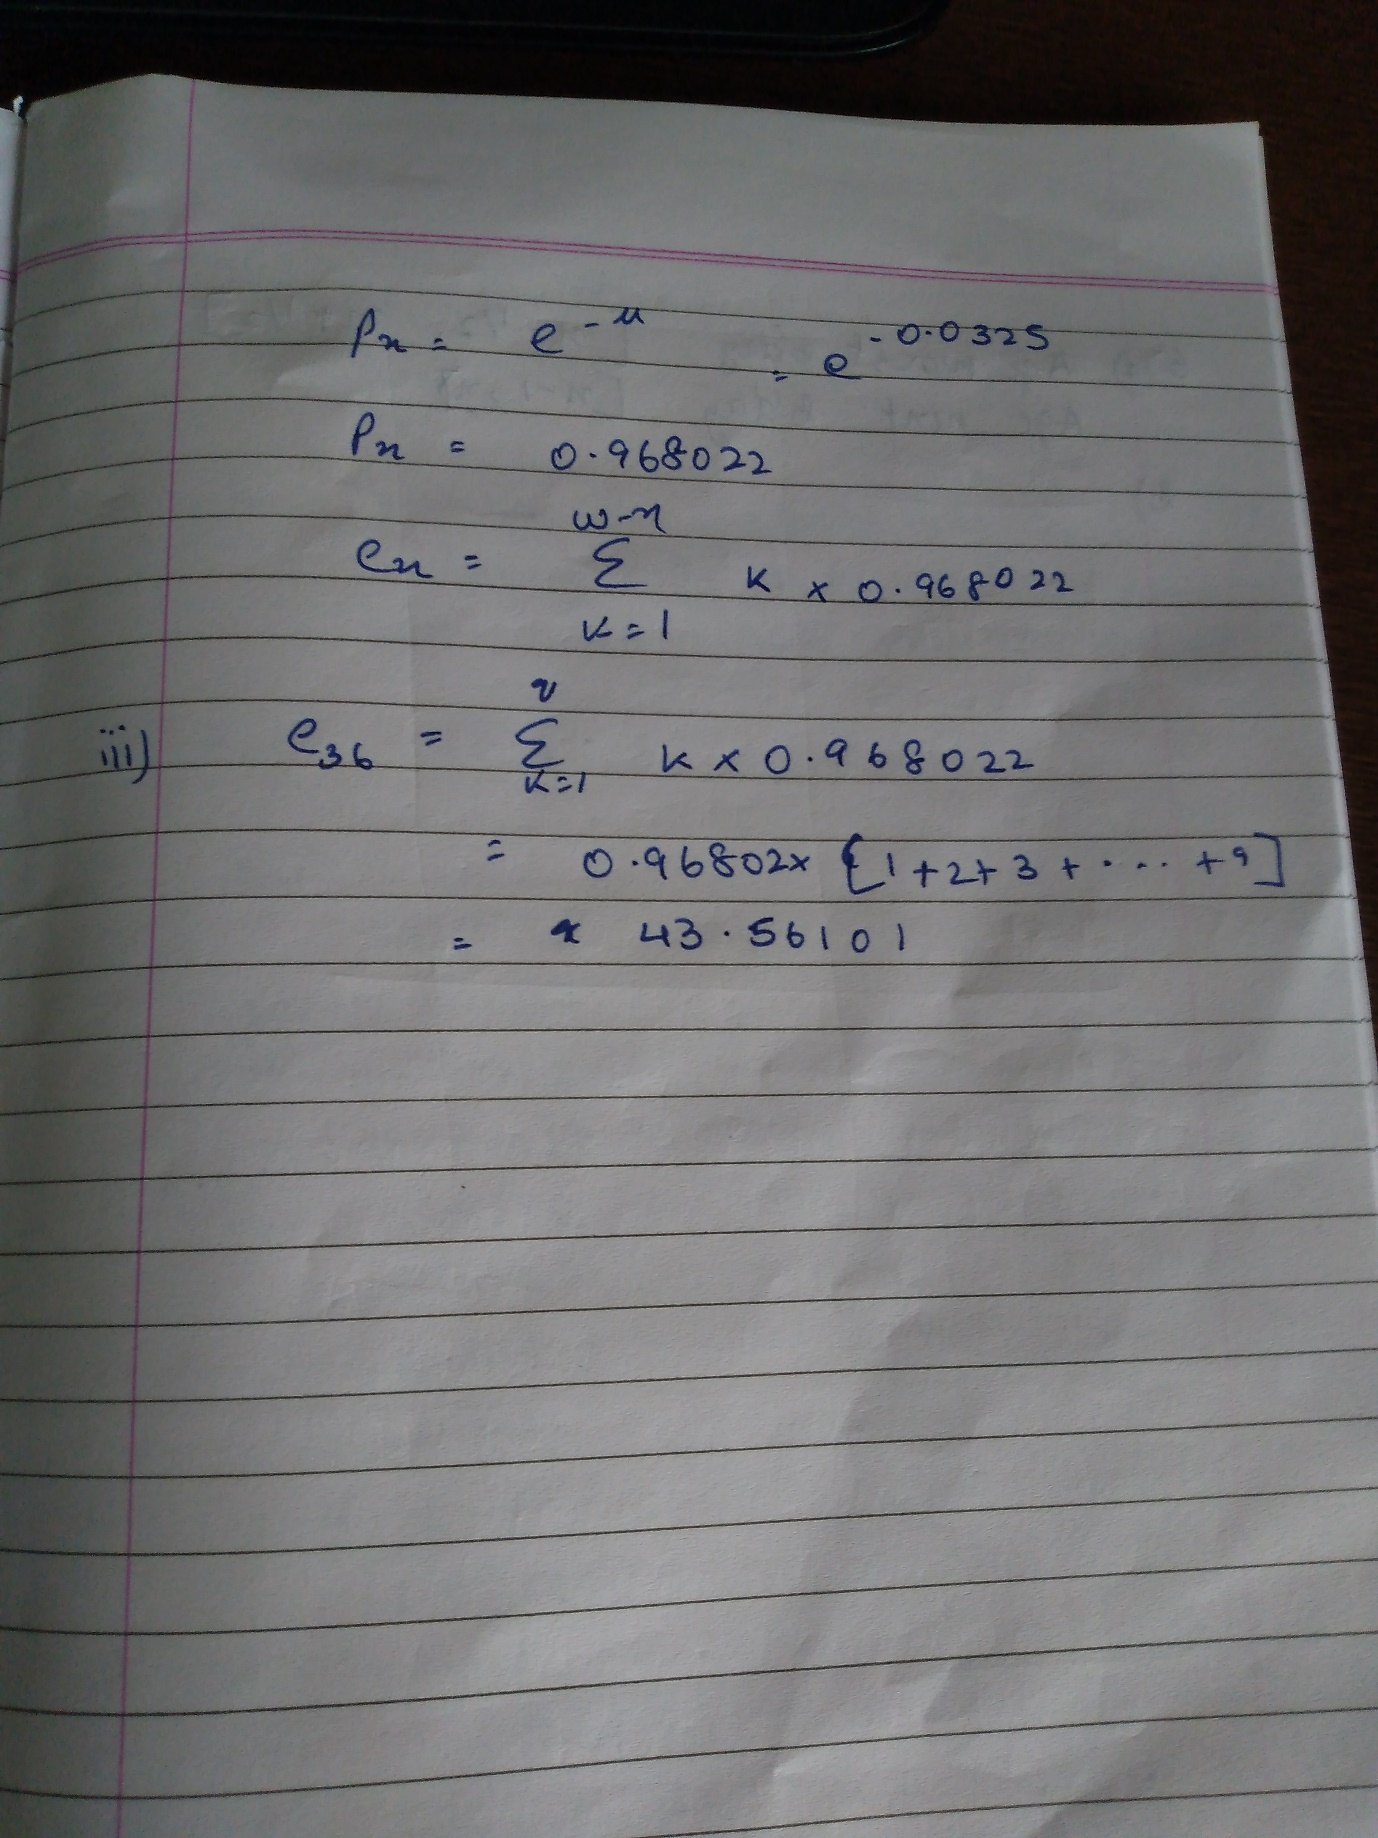 Px = e^-μ = e^-0.0325
Px = 0.968022
ex = Σ_{k=1}^{ω-x} k × 0.968022
iii) e36 = Σ_{k=1}^{9} k × 0.968022
= 0.96802× [1+2+3+....+9]
= 43.56101